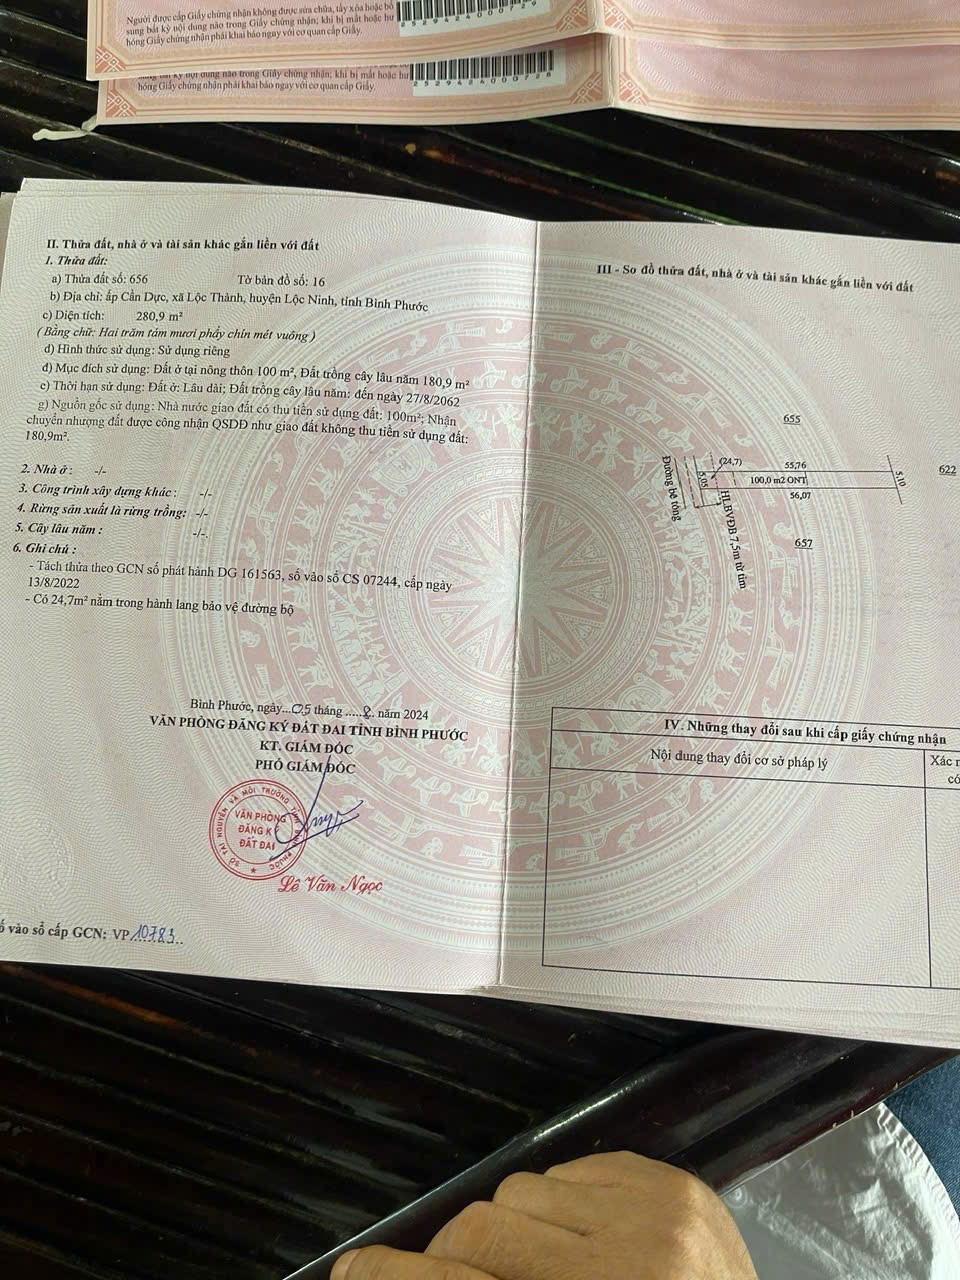 Người được cấp Giấy chứng nhận không được sửa chữa, tẩy xóa hoặc bổ
sung bất kỳ nội dung nào trong Giấy chứng nhận; khi bị mất hoặc hư
hỏng Giấy chứng nhận phải khai báo ngay với cơ quan cấp Giấy.
kỳ nội dung nào trong Giấy chứng nhận; khi bị mất hoặc hư
hỏng Giấy chứng nhận phải khai báo ngay với cơ quan cấp Giấy.
2529424000728
II. Thửa đất, nhà ở và tài sản khác gắn liền với đất
1. Thửa đất:
a) Thửa đất số: 656 Tờ bản đồ số: 16
b) Địa chỉ: ấp Cần Dực, xã Lộc Thành, huyện Lộc Ninh, tỉnh Bình Phước
c) Diện tích: 280,9 m²
( Bằng chữ: Hai trăm tám mươi phẩy chín mét vuông )
d) Hình thức sử dụng: Sử dụng riêng
đ) Mục đích sử dụng: Đất ở tại nông thôn 100 m², Đất trồng cây lâu năm 180,9 m²
e) Thời hạn sử dụng: Đất ở: Lâu dài; Đất trồng cây lâu năm: đến ngày 27/8/2062
g) Nguồn gốc sử dụng: Nhà nước giao đất có thu tiền sử dụng đất: 100m²; Nhận
chuyển nhượng đất được công nhận QSDĐ như giao đất không thu tiền sử dụng đất:
180,9m².
2. Nhà ở : -/-
3. Công trình xây dựng khác : -/-
4. Rừng sản xuất là rừng trồng: -/-
5. Cây lâu năm : -/-.
6. Ghi chú :
- Tách thửa theo GCN số phát hành DG 161563, số vào sổ CS 07244, cấp ngày
13/8/2022
- Có 24,7m² nằm trong hành lang bảo vệ đường bộ
Bình Phước, ngày...05 tháng .....8. năm 2024
VĂN PHÒNG ĐĂNG KÝ ĐẤT ĐAI TỈNH BÌNH PHƯỚC
KT. GIÁM ĐỐC
PHÓ GIÁM ĐỐC
SỞ TÀI NGUYÊN VÀ MÔI TRƯỜNG TỈNH BÌNH PHƯỚC
VĂN PHÒNG
ĐĂNG KÝ
ĐẤT ĐAI
Lê Văn Ngọc
ố vào sổ cấp GCN: VP.10783..
III - Sơ đồ thửa đất, nhà ở và tài sản khác gắn liền với đất
655
622
(24,7)
55,76
5,10
5,05
100,0 m2 ONT
56,07
Đường bê tông
HLBVĐB 7,5m từ tim
657
IV. Những thay đổi sau khi cấp giấy chứng nhận
Nội dung thay đổi cơ sở pháp lý
Xác n
có